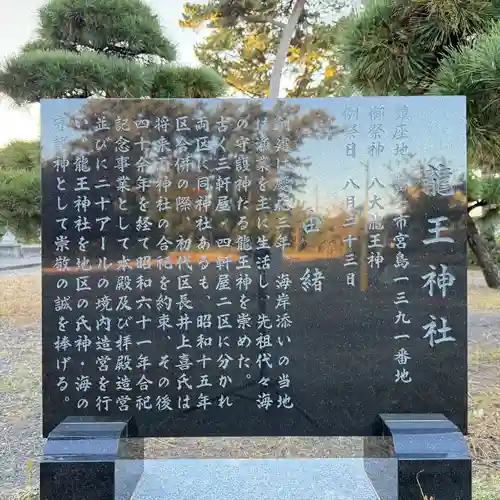 龍王神社
鎮座地 市宮島一三九一番地
御祭神 八大龍王神
例祭日 八月二十三日
由緒
創建は慶応三年 海岸添いの当地
は漁業を主に生活し、先祖代々海
の守護神たる龍王神を崇めた。
古く三軒屋、四軒屋二区に分かれ
両区に同神社あるも、昭和十五年
区合併の際、初代区長井上喜氏は
将来両神社の合祀を約束、その後
四十余年を経て昭和六十一年合祀
記念事業として本殿及び拝殿造営
並びに二十アールの境内造営を行
い、龍王神社を地区の氏神・海の
守護神として崇敬の誠を捧げる。